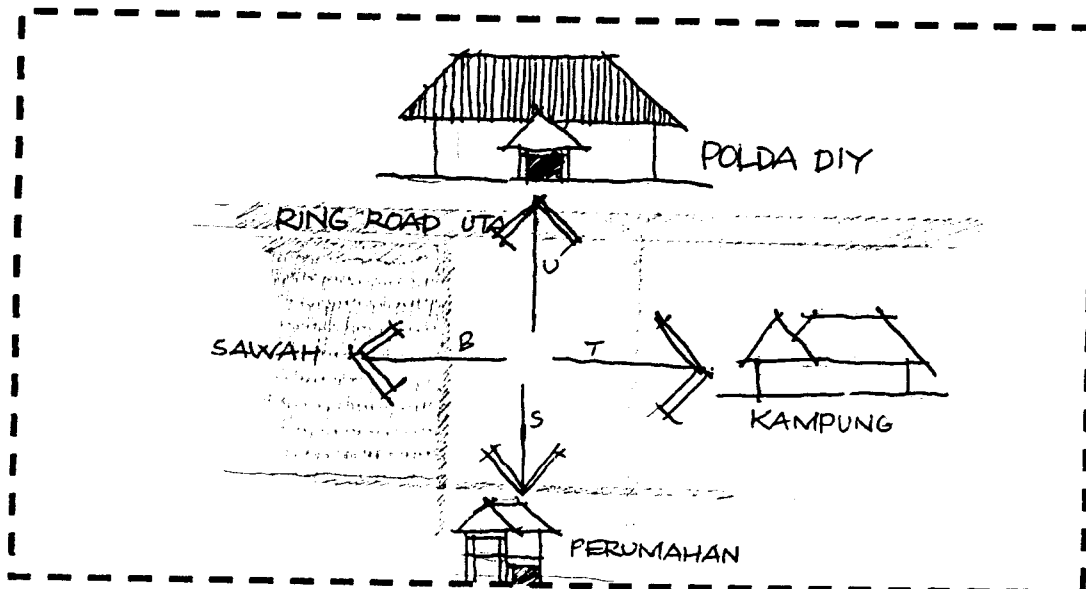 POLDA DIY
RING ROAD UTA
U
SAWAH
B
T
KAMPUNG
S
PERUMAHAN